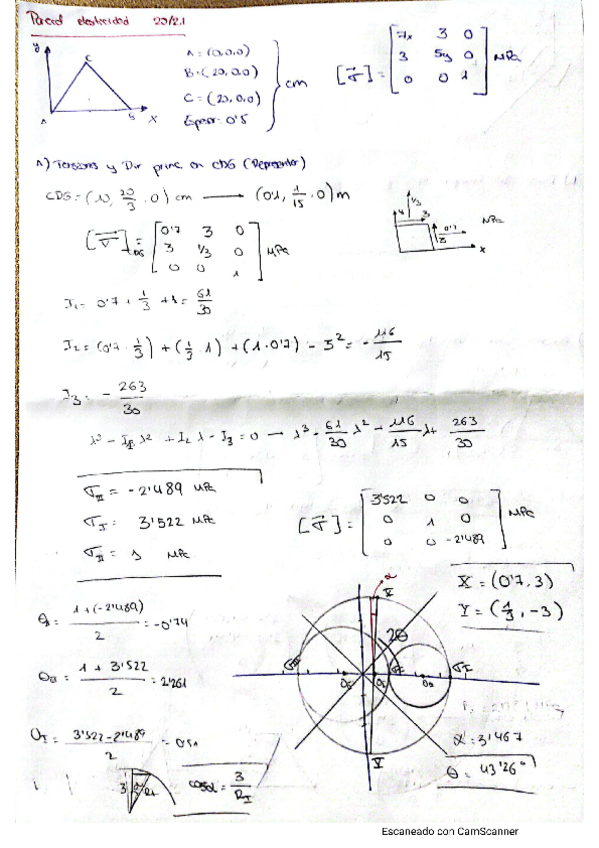 Parcial elasticidad 20/21
y
C
A
B
X
A = (0,0,0)
B = (20,0,0)
C = (20,20,0)
Espesor: 0'5
cm
[σ] = [7x 3 0
3 5y 0
0 0 1] MPa
A) Tensiones y Dir princ en CDG (Representar)
CDG = (10, 20/3, 0) cm → (0'1, 1/15, 0) m
[σ]CDG = [0'7 3 0
3 1/3 0
0 0 1] MPa
1/3
3
0'7
3
x
MPa
I1 = 0'7 + 1/3 + 1 = 61/30
I2 = (0'7 · 1/3) + (1/3 · 1) + (1 · 0'7) - 3² = -116/15
I3 = - 263/30
λ³ - I1 λ² + I2 λ - I3 = 0 → λ³ - 61/30 λ² - 116/15 λ + 263/30
σIII = -2'489 MPa
σI = 3'522 MPa
σII = 1 MPa
[σ] = [3'522 0 0
0 1 0
0 0 -2'489] MPa
X = (0'7, 3)
Y = (1/3, -3)
α
2θ
σI
= (1 + (-2'489))/2 = -0'74
= (1 + 3'522)/2 = 2'261
OI = (3'522 - 2'489)/2 = 0'51
3
α
cosα = 3/RI
α = 3'467
θ = 43'26°
Escaneado con CamScanner